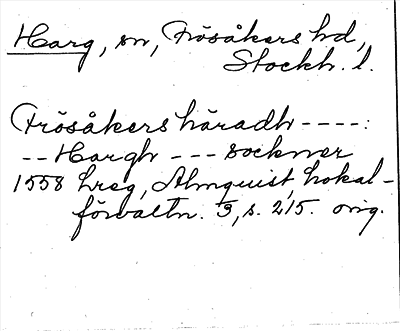 Harg, sn, Frösåkers hd,
Stockh. l.
Frösåkers häradh ----:
-- Hargh --- sockner
1558 hreg, Almquist, Lokal-
förvaltn. 3, s. 215. orig.